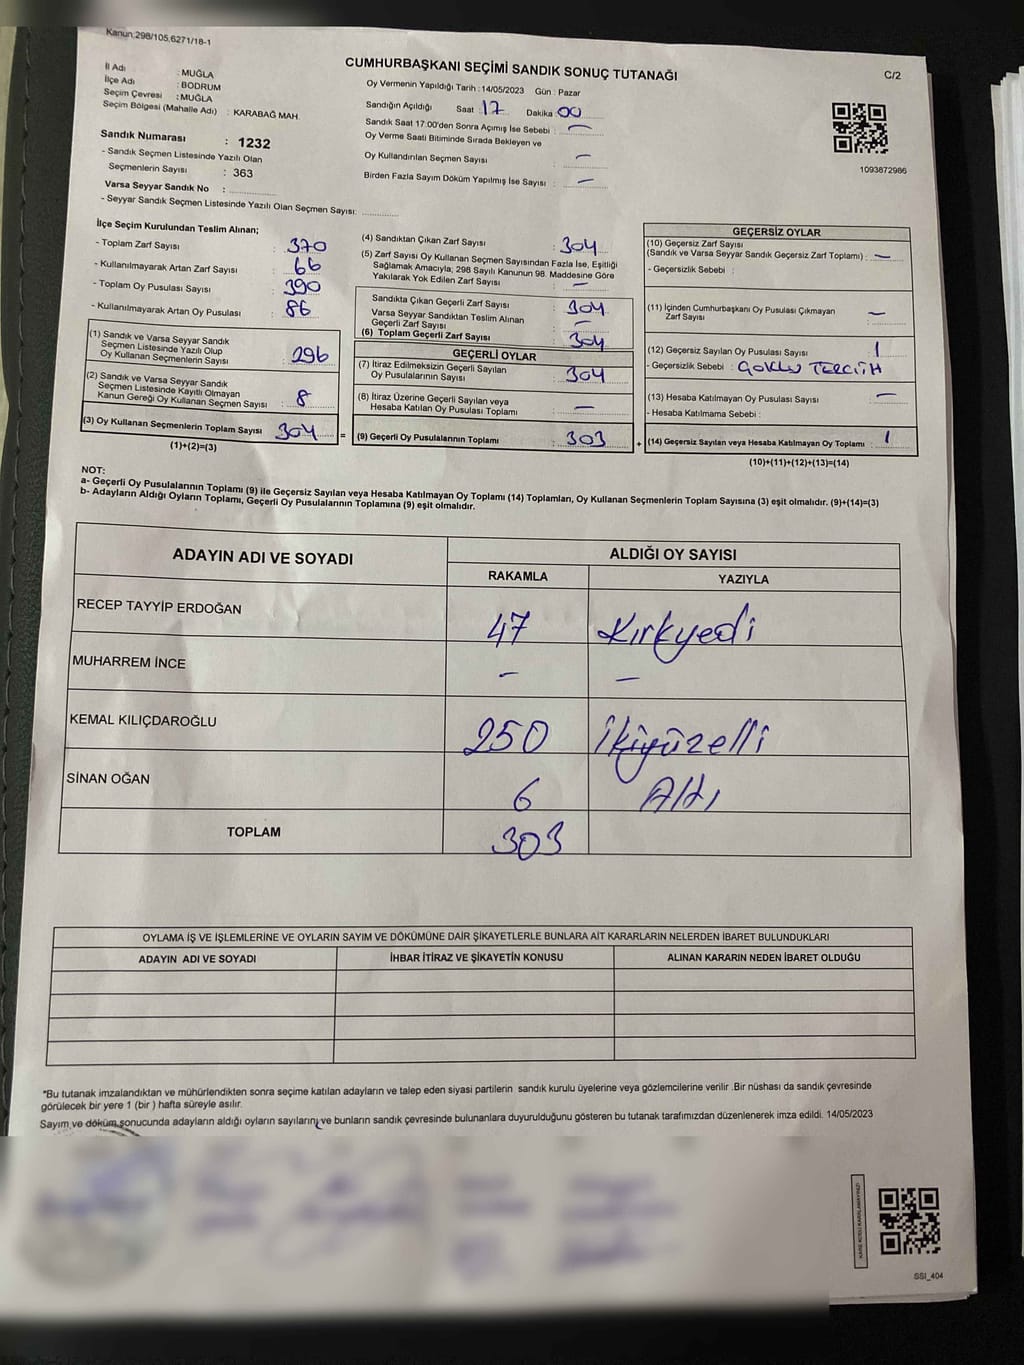 Kanun:298/105,6271/18-1
CUMHURBAŞKANI SEÇİMİ SANDIK SONUÇ TUTANAĞI
C/2
İl Adı : MUĞLA
İlçe Adı : BODRUM
Seçim Çevresi : MUĞLA
Seçim Bölgesi (Mahalle Adı) : KARABAĞ MAH.
Sandık Numarası : 1232
- Sandık Seçmen Listesinde Yazılı Olan
Seçmenlerin Sayısı : 363
Varsa Seyyar Sandık No :
- Seyyar Sandık Seçmen Listesinde Yazılı Olan Seçmen Sayısı:
Oy Vermenin Yapıldığı Tarih : 14/05/2023 Gün : Pazar
Sandığın Açıldığı Saat : 17 Dakika : 00
Sandık Saat 17.00'den Sonra Açımış İse Sebebi : —
Oy Verme Saati Bitiminde Sırada Bekleyen ve
Oy Kullandırılan Seçmen Sayısı : —
Birden Fazla Sayım Döküm Yapılmış İse Sayısı : —
1093872986
İlçe Seçim Kurulundan Teslim Alınan;
- Toplam Zarf Sayısı : 370
- Kullanılmayarak Artan Zarf Sayısı : 66
- Toplam Oy Pusulası Sayısı : 390
- Kullanılmayarak Artan Oy Pusulası : 86
(1) Sandık ve Varsa Seyyar Sandık
Seçmen Listesinde Yazılı Olup
Oy Kullanan Seçmenlerin Sayısı : 296
(2) Sandık ve Varsa Seyyar Sandık
Seçmen Listesinde Kayıtlı Olmayan
Kanun Gereği Oy Kullanan Seçmen Sayısı : 8
(3) Oy Kullanan Seçmenlerin Toplam Sayısı : 304
(1)+(2)=(3)
=
(4) Sandıktan Çıkan Zarf Sayısı : 304
(5) Zarf Sayısı Oy Kullanan Seçmen Sayısından Fazla İse, Eşitliği
Sağlamak Amacıyla; 298 Sayılı Kanunun 98. Maddesine Göre
Yakılarak Yok Edilen Zarf Sayısı : —
Sandıkta Çıkan Geçerli Zarf Sayısı : 304
Varsa Seyyar Sandıktan Teslim Alınan
Geçerli Zarf Sayısı : —
(6) Toplam Geçerli Zarf Sayısı : 304
GEÇERLİ OYLAR
(7) İtiraz Edilmeksizin Geçerli Sayılan
Oy Pusulalarının Sayısı : 304
(8) İtiraz Üzerine Geçerli Sayılan veya
Hesaba Katılan Oy Pusulası Toplamı : —
(9) Geçerli Oy Pusulalarının Toplamı : 303
+
GEÇERSİZ OYLAR
(10) Geçersiz Zarf Sayısı
(Sandık ve Varsa Seyyar Sandık Geçersiz Zarf Toplamı) : —
- Geçersizlik Sebebi :
(11) İçinden Cumhurbaşkanı Oy Pusulası Çıkmayan
Zarf Sayısı : —
(12) Geçersiz Sayılan Oy Pusulası Sayısı : 1
- Geçersizlik Sebebi : ÇOKLU TERCİH
(13) Hesaba Katılmayan Oy Pusulası Sayısı : —
- Hesaba Katılmama Sebebi :
(14) Geçersiz Sayılan veya Hesaba Katılmayan Oy Toplamı : 1
(10)+(11)+(12)+(13)=(14)
NOT:
a- Geçerli Oy Pusulalarının Toplamı (9) ile Geçersiz Sayılan veya Hesaba Katılmayan Oy Toplamı (14) Toplamları, Oy Kullanan Seçmenlerin Toplam Sayısına (3) eşit olmalıdır. (9)+(14)=(3)
b- Adayların Aldığı Oyların Toplamı, Geçerli Oy Pusulalarının Toplamına (9) eşit olmalıdır.
ADAYIN ADI VE SOYADI ALDIĞI OY SAYISI
RAKAMLA YAZIYLA
RECEP TAYYİP ERDOĞAN 47 Kırkyedi
MUHARREM İNCE — —
KEMAL KILIÇDAROĞLU 250 İkiyüzelli
SİNAN OĞAN 6 Altı
TOPLAM 303
OYLAMA İŞ VE İŞLEMLERİNE VE OYLARIN SAYIM VE DÖKÜMÜNE DAİR ŞİKAYETLERLE BUNLARA AİT KARARLARIN NELERDEN İBARET BULUNDUKLARI
ADAYIN ADI VE SOYADI İHBAR İTİRAZ VE ŞİKAYETİN KONUSU ALINAN KARARIN NEDEN İBARET OLDUĞU
*Bu tutanak imzalandıktan ve mühürlendikten sonra seçime katılan adayların ve talep eden siyasi partilerin sandık kurulu üyelerine veya gözlemcilerine verilir .Bir nüshası da sandık çevresinde
görülecek bir yere 1 (bir ) hafta süreyle asılır.
Sayım ve döküm sonucunda adayların aldığı oyların sayılarını ve bunların sandık çevresinde bulunanlara duyurulduğunu gösteren bu tutanak tarafımızdan düzenlenerek imza edildi. 14/05/2023
KARE KODU KARALAMAYINIZ!
SSI_404